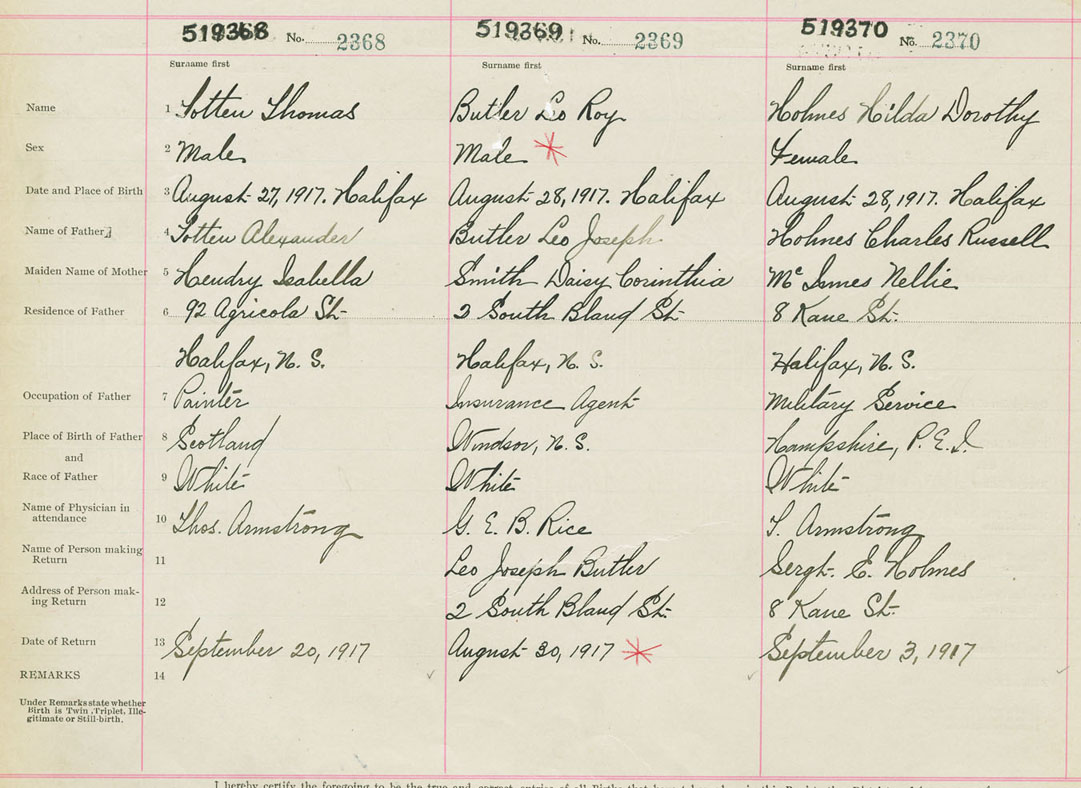 519368 No. 2368 519369 No. 2369 519370 No. 2370
Surname first Surname first Surname first
Name 1 Totten Thomas Butler Leo Roy Holmes Hilda Dorothy
Sex 2 Male Male Female
Date and Place of Birth 3 August 27, 1917. Halifax August 28, 1917. Halifax August 28, 1917. Halifax
Name of Father 4 Totten Alexander Butler Leo Joseph Holmes Charles Russell
Maiden Name of Mother 5 Hendry Isabella Smith Daisy Corinthia Nellie
Residence of Father 6 92 Agricola St. 2 South Bland St. 8 Kane St.
Halifax, N. S. Halifax, N. S. Halifax, N. S.
Occupation of Father 7 Painter Insurance Agent Military Service
Place of Birth of Father 8 Scotland Windsor, N. S. Hampshire, P. E. I.
and
Race of Father 9 White White White
Name of Physician in
attendance 10 Thos. Armstrong G. E. B. Rice T. Armstrong
Name of Person making
Return 11 Leo Joseph Butler Sergt. E. Holmes
Address of Person mak-
ing Return 12 2 South Bland St. 8 Kane St.
Date of Return 13 September 20, 1917 August 30, 1917 September 3, 1917
REMARKS 14
Under Remarks state whether
Birth is Twin, Triplet, Ille-
gitimate or Still-birth.
I hereby certify the foregoing to be the true and correct entries of all Births